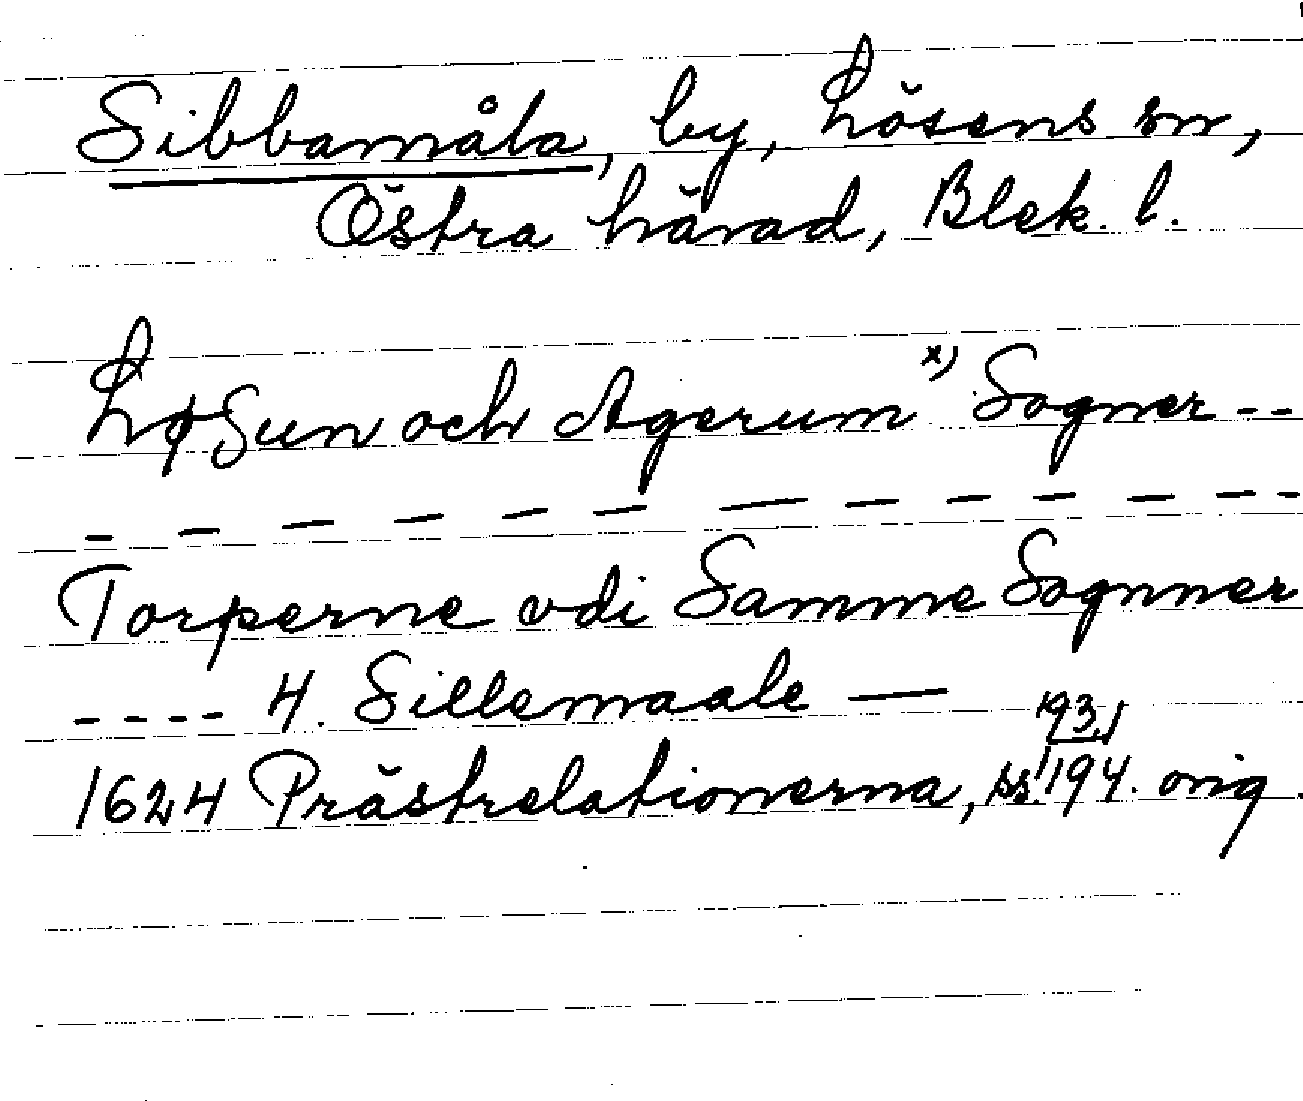 Sibbamåla, by, Lösens sn,
Östra härad, Blek. l.
Løsun och Agerum x) Sogner --
- - - - - - - - - - - - -
Torperne vdi Samme Sognner
---- 4. Sillemaale —
1624 Prästrelationerna, ss. 193, 194. orig.